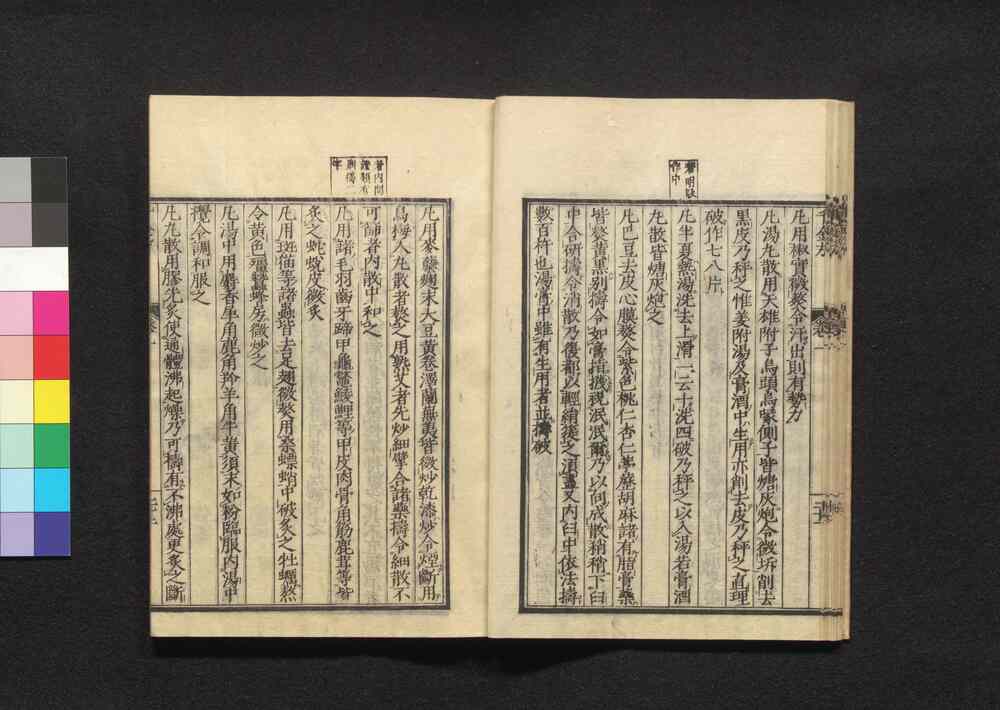 凡用椒實微熬令汗出則有勢力
凡湯丸散用天雄附子烏頭烏喙側子皆煻灰炮令微坼削去
黑皮乃秤之惟姜附湯及膏酒中生用亦削去皮乃秤之直理
破作七八片
凡半夏熱湯洗去上滑一云十洗四破乃秤之以入湯若膏酒
凡散皆煻灰炮之
凡巴豆去皮心膜熬令紫色桃仁杏仁葶藶胡麻諸有脂膏藥
皆熬黃黑別擣令如膏指㩢視泯泯爾乃以向成散稍稍下臼
中合研擣令消散乃復都以輕絹篩之須盡又內臼中依法擣
數百杵也湯膏中雖有生用者並擣破
凡用麥蘗麴末大豆黃卷澤蘭蕪荑皆微炒乾漆炒令煙斷用
烏梅入丸散者熬之用熟艾者先炒細擘合諸藥擣令細散不
可篩者內散中和之
凡用諸毛羽齒牙蹄甲龜鱉鯪鯉等甲皮肉骨角筋鹿茸等皆
炙之蛇蛻皮微炙
凡用斑猫等諸蟲皆去足翅微熬用桑螵蛸中破炙之牡蠣熬
令黃色殭蠶蜂房微炒之
凡湯中用麝香犀角鹿角羚羊角牛黃須末如粉臨服內湯中
攪令調和服之
凡丸散用膠先炙使通體沸起燥乃可擣有不沸處更炙之斷